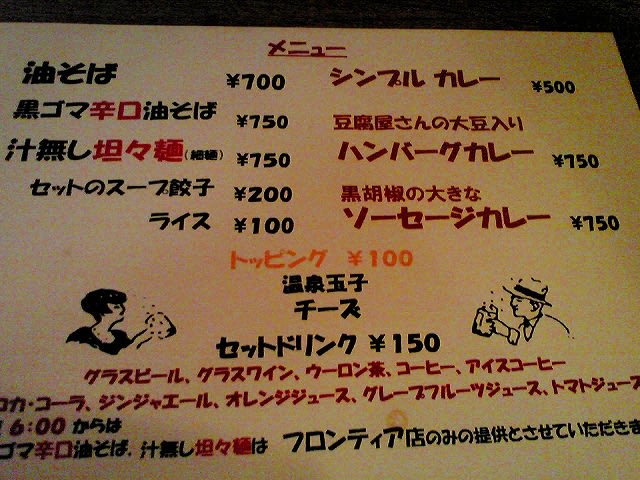 メニュー
油そば ¥700
黒ゴマ辛口油そば ¥750
汁無し坦々麺(細麺) ¥750
セットのスープ餃子 ¥200
ライス ¥100
シンプル カレー ¥500
豆腐屋さんの大豆入り
ハンバーグカレー ¥750
黒胡椒の大きな
ソーセージカレー ¥750
トッピング ¥100
温泉玉子
チーズ
セットドリンク ¥150
グラスビール、グラスワイン、ウーロン茶、コーヒー、アイスコーヒー
コカ・コーラ、ジンジャエール、オレンジジュース、グレープフルーツジュース、トマトジュース
6:00 からは
ゴマ辛口油そば、汁無し坦々麺は フロンティア店のみの提供とさせていただきま